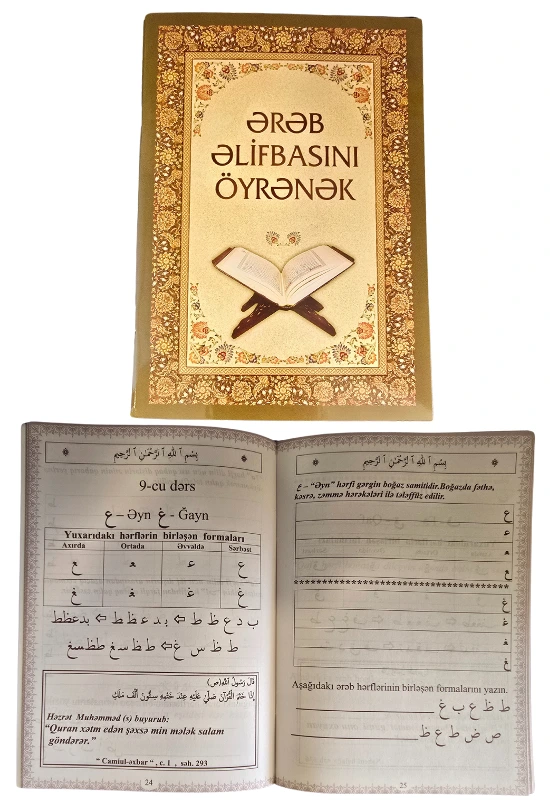 ƏRƏB
ƏLİFBASINI
ÖYRƏNƏK
بِسْمِ ٱللّٰهِ ٱلرَّحْمٰنِ ٱلرَّحِيمِ
9-cu dərs
ع – Əyn غ - Ğayn
Yuxarıdakı hərflərin birləşən formaları
Axırda Ortada Əvvəldə Sərbəst
ع ع ع ع
غ غ غ غ
ب د ع ظ ط ⇦ ب د ع ظ ط ⇦ بدعظط
ط ظ س غ ⇦ ط ظ س غ طظسغ
قَالَ رَسُولُ اللّٰهِ(ص)
إِذَا خَتَمَ الْقُرْآنَ صَلَّىٰ عَلَيْهِ عِنْدَ خَتْمِهِ سِتُّونَ أَلْفَ مَلَكٍ
Həzrət Muhəmməd (s) buyurub:
“Quran xətm edən şəxsə min mələk salam
göndərər.”
“ Camiul-əxbar “ , c. 1 , səh. 293
24
بِسْمِ ٱللّٰهِ ٱلرَّحْمٰنِ ٱلرَّحِيمِ
ع – “Əyn” hərfi gərgin boğaz samitidir.Boğazda fəthə,
kəsrə, zəmmə hərəkələri ilə tələffüz edilir.
ع
ع
ع
ع
غ
غ
غ
غ
Aşağıdakı ərəb hərflərinin birləşən formalarını yazın.
ط ظ ع ب غ
ص ض ط ع ظ
25